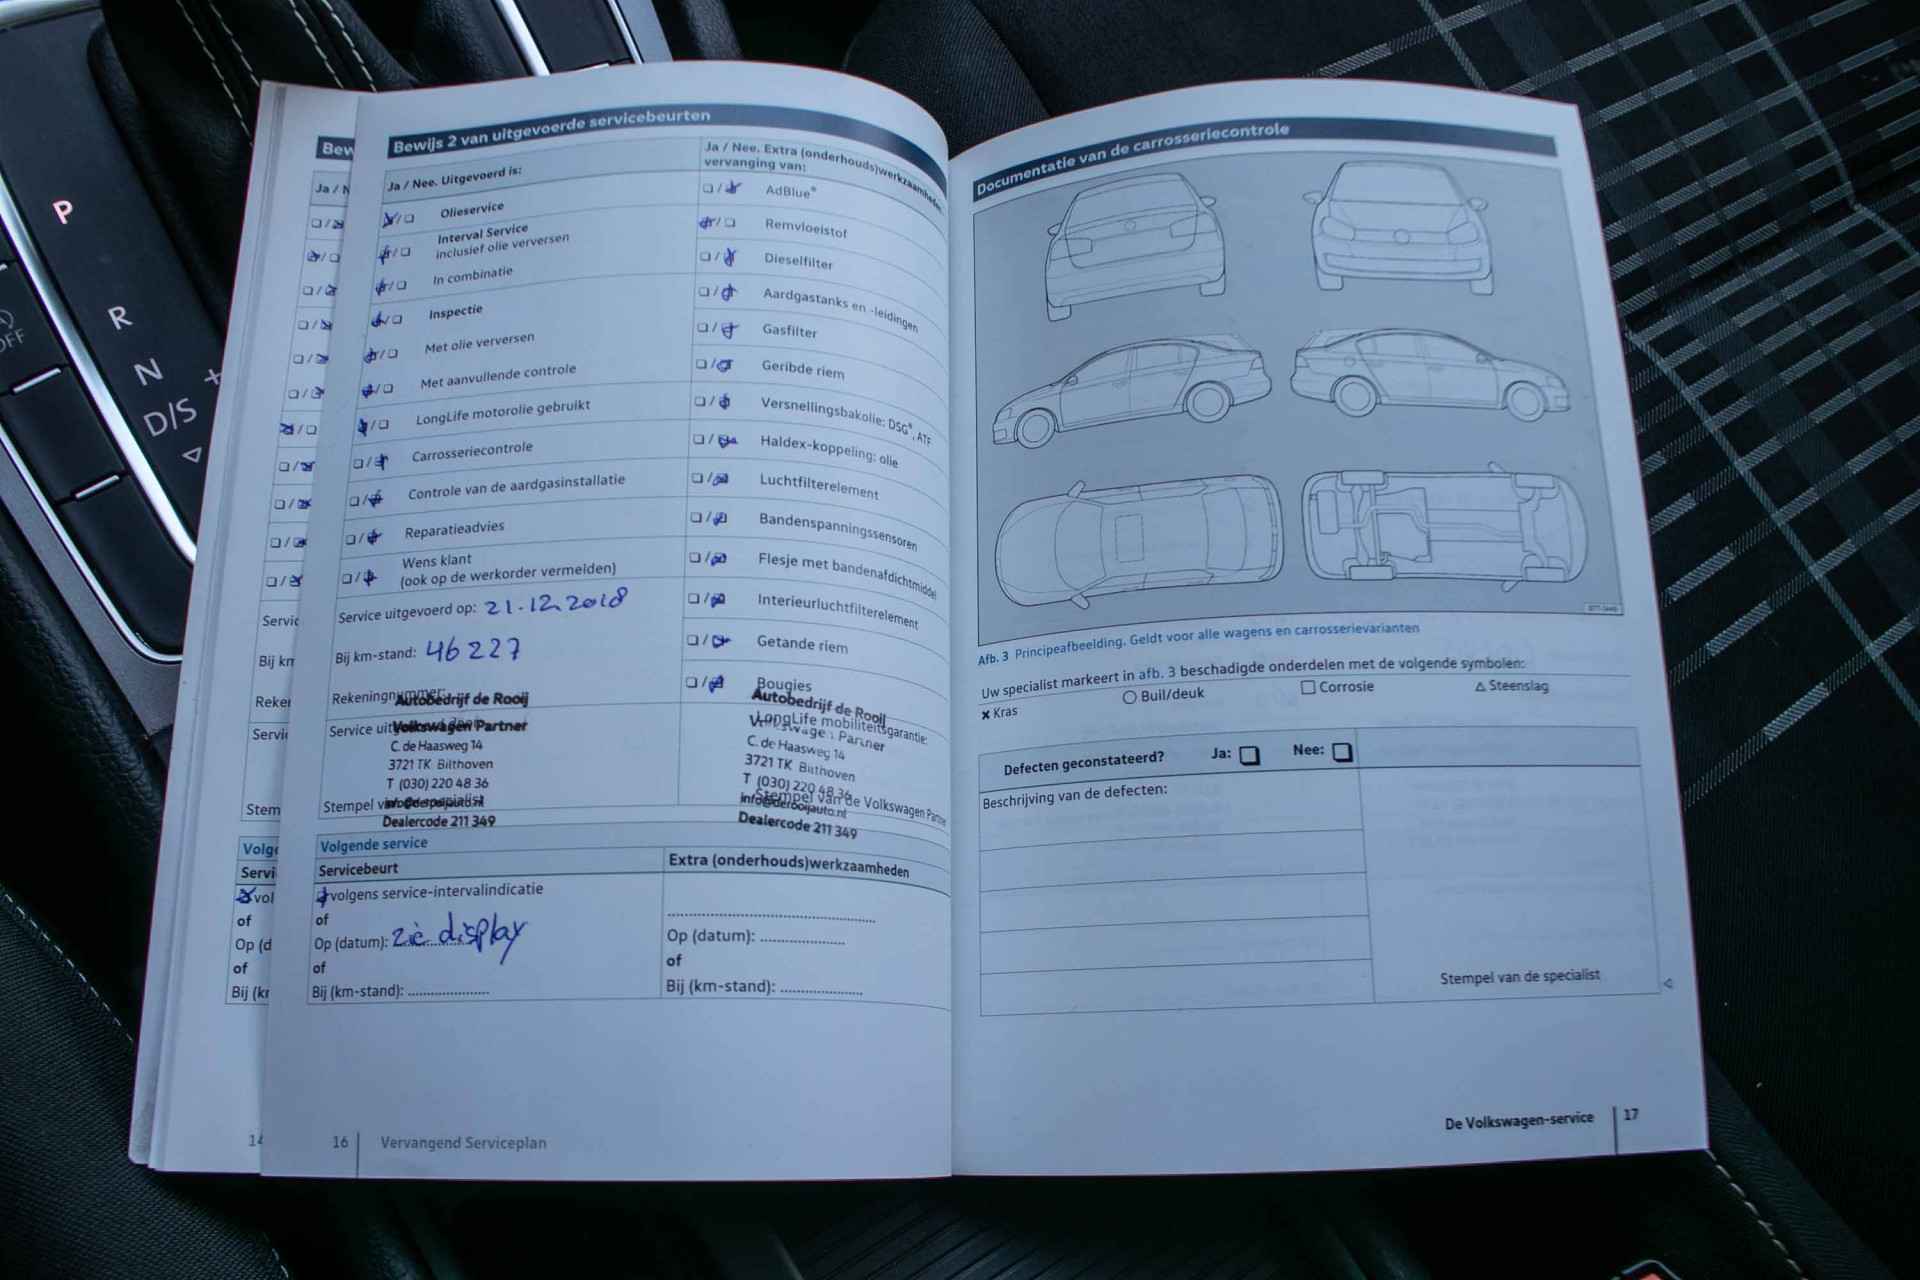 P
R
N
D/S
+
OFF
Bew
Ja / N
Servic
Bij km
Reken
Servic
Stem
Volge
Servi
vol
of
Op (d
of
Bij (kr
14
Bewijs 2 van uitgevoerde servicebeurten
Ja / Nee. Uitgevoerd is:
Olieservice
Interval Service
inclusief olie verversen
In combinatie
Inspectie
Met olie verversen
Met aanvullende controle
LongLife motorolie gebruikt
Carrosseriecontrole
Controle van de aardgasinstallatie
Reparatieadvies
Wens klant
(ook op de werkorder vermelden)
Service uitgevoerd op: 21.12.2018
Bij km-stand: 46227
Rekeningnummer:
Autobedrijf de Rooij
Volkswagen Partner
C. de Haasweg 14
3721 TK Bilthoven
T (030) 220 48 36
info@derooijauto.nl
Dealercode 211 349
Ja / Nee. Extra (onderhouds)werkzaamheden,
vervanging van:
AdBlue®
Remvloeistof
Dieselfilter
Aardgastanks en -leidingen
Gasfilter
Geribde riem
Versnellingsbakolie: DSG®, ATF
Haldex-koppeling: olie
Luchtfilterelement
Bandenspanningssensoren
Flesje met bandenafdichtmiddel
Interieurluchtfilterelement
Getande riem
Bougies
Autobedrijf de Rooij
LongLife mobiliteitsgarantie:
Volkswagen Partner
C. de Haasweg 14
3721 TK Bilthoven
T (030) 220 48 36
Stempel van de Volkswagen Partne
info@derooijauto.nl
Dealercode 211 349
Volgende service
Servicebeurt
volgens service-intervalindicatie
of
Op (datum): zie display
of
Bij (km-stand): ....................
Extra (onderhouds)werkzaamheden
..................................................
Op (datum): .....................
of
Bij (km-stand): ....................
16 Vervangend Serviceplan
Documentatie van de carrosseriecontrole
Afb. 3 Principeafbeelding. Geldt voor alle wagens en carrosserievarianten
Uw specialist markeert in afb. 3 beschadigde onderdelen met de volgende symbolen:
× Kras ○ Buil/deuk □ Corrosie △ Steenslag
Defecten geconstateerd? Ja: ❏ Nee: ❏
Beschrijving van de defecten:
Stempel van de specialist
De Volkswagen-service 17